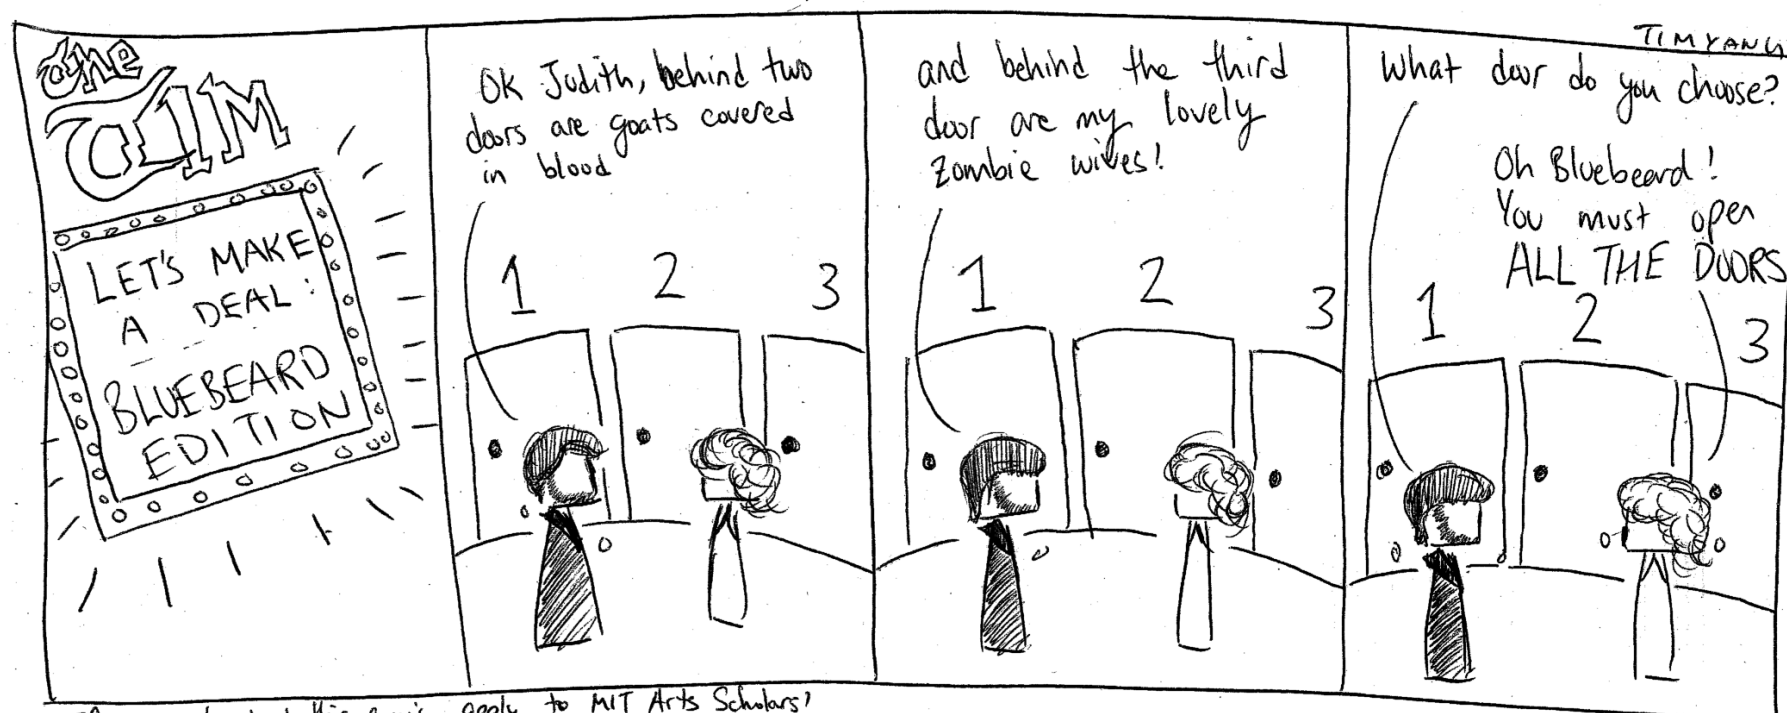 the
TIM
LET'S MAKE
A DEAL:
BLUEBEARD
EDITION
OK Judith, behind two
doors are goats covered
in blood
1 2 3
and behind the third
door are my lovely
zombie wives!
1 2 3
TIM YANG
What door do you choose?
Oh Bluebeard!
You must open
ALL THE DOORS
1 2 3
apply to MIT Arts Scholars!